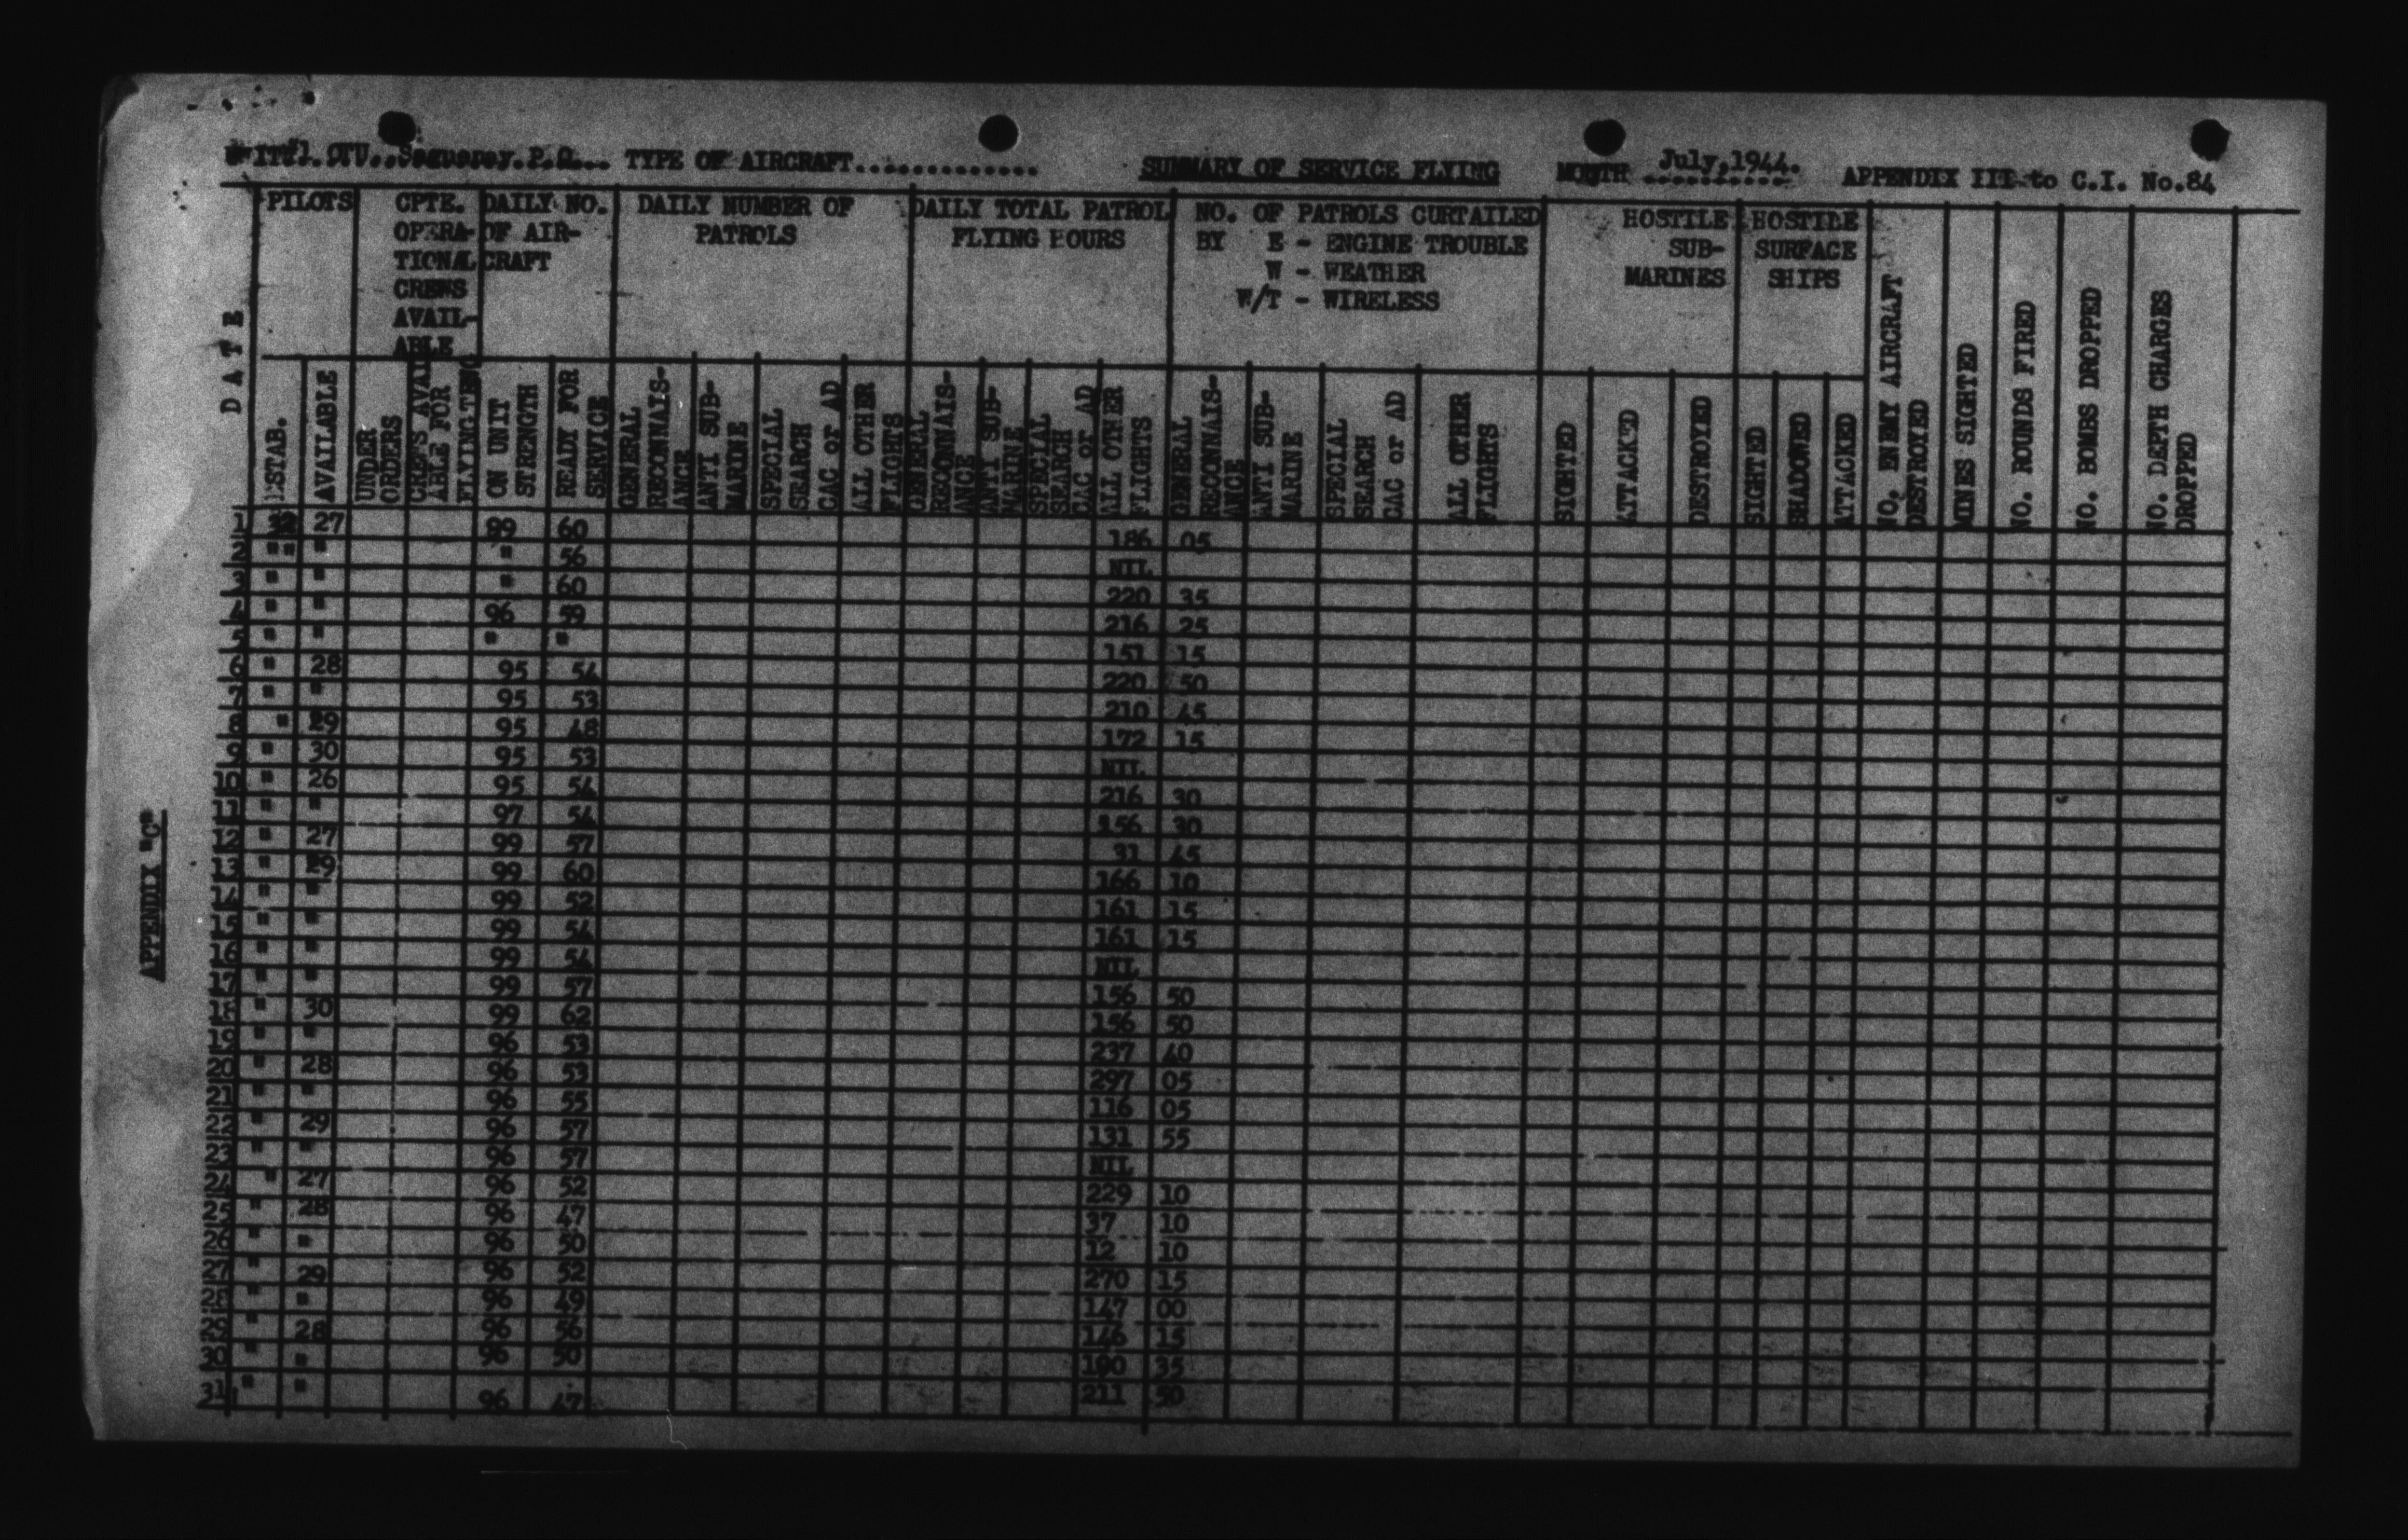 UNIT #1 OTU. Saguenay.P.Q.... TYPE OF AIRCRAFT............. SUMMARY OF SERVICE FLYING MONTH July,1944. APPENDIX III to C.I. No.84
DATE
PILOTS
CPTE. OPERA-TIONAL CREWS AVAIL-ABLE
DAILY NO. OF AIR-CRAFT
DAILY NUMBER OF PATROLS
DAILY TOTAL PATROL FLYING HOURS
NO. OF PATROLS CURTAILED
BY E - ENGINE TROUBLE
W - WEATHER
W/T - WIRELESS
HOSTILE SUB-MARINES
HOSTILE SURFACE SHIPS
NO. ENEMY AIRCRAFT DESTROYED
MINES SIGHTED
NO. ROUNDS FIRED
NO. BOMBS DROPPED
NO. DEPTH CHARGES DROPPED
ESTAB.
AVAILABLE
UNDER ORDERS
ABLE FOR
ON UNIT STRENGTH
READY FOR SERVICE
GENERAL RECONNAIS-ANCE
ANTI SUB-MARINE
SPECIAL SEARCH CAC or AD
ALL OTHER FLIGHTS
GENERAL RECONNAIS-ANCE
ANTI SUB-MARINE
SPECIAL SEARCH CAC or AD
ALL OTHER FLIGHTS
GENERAL RECONNAIS-ANCE
ANTI SUB-MARINE
SPECIAL SEARCH CAC or AD
ALL OTHER FLIGHTS
SIGHTED
ATTACKED
DESTROYED
SIGHTED
SHADOWED
ATTACKED
1 27 99 60 186 05
2 " " " " 56 NIL
3 " " " 60 220 35
4 " " 96 59 216 25
5 " " " " 151 15
6 " 28 95 54 220 50
7 " " 95 53 210 45
8 " 29 95 48 172 15
9 " 30 95 53 NIL
10 " 26 95 54 216 30
11 " " 97 54 156 30
12 " 27 99 57 31 45
13 " 29 99 60 166 10
14 " " 99 52 161 15
15 " " 99 54 161 15
16 " " 99 54 NIL
17 " " 99 57 156 50
18 " 30 99 62 156 50
19 " " 96 53 237 40
20 " 28 96 53 297 05
21 " " 96 55 116 05
22 " 29 96 57 131 55
23 " " 96 57 NIL
24 " 27 96 52 229 10
25 " 28 96 47 37 10
26 " " 96 50 12 10
27 " 29 96 52 270 15
28 " " 96 49 147 00
29 " 28 96 56 146 15
30 " " 96 50 190 35
31 " " 96 47 211 50
APPENDIX "C"